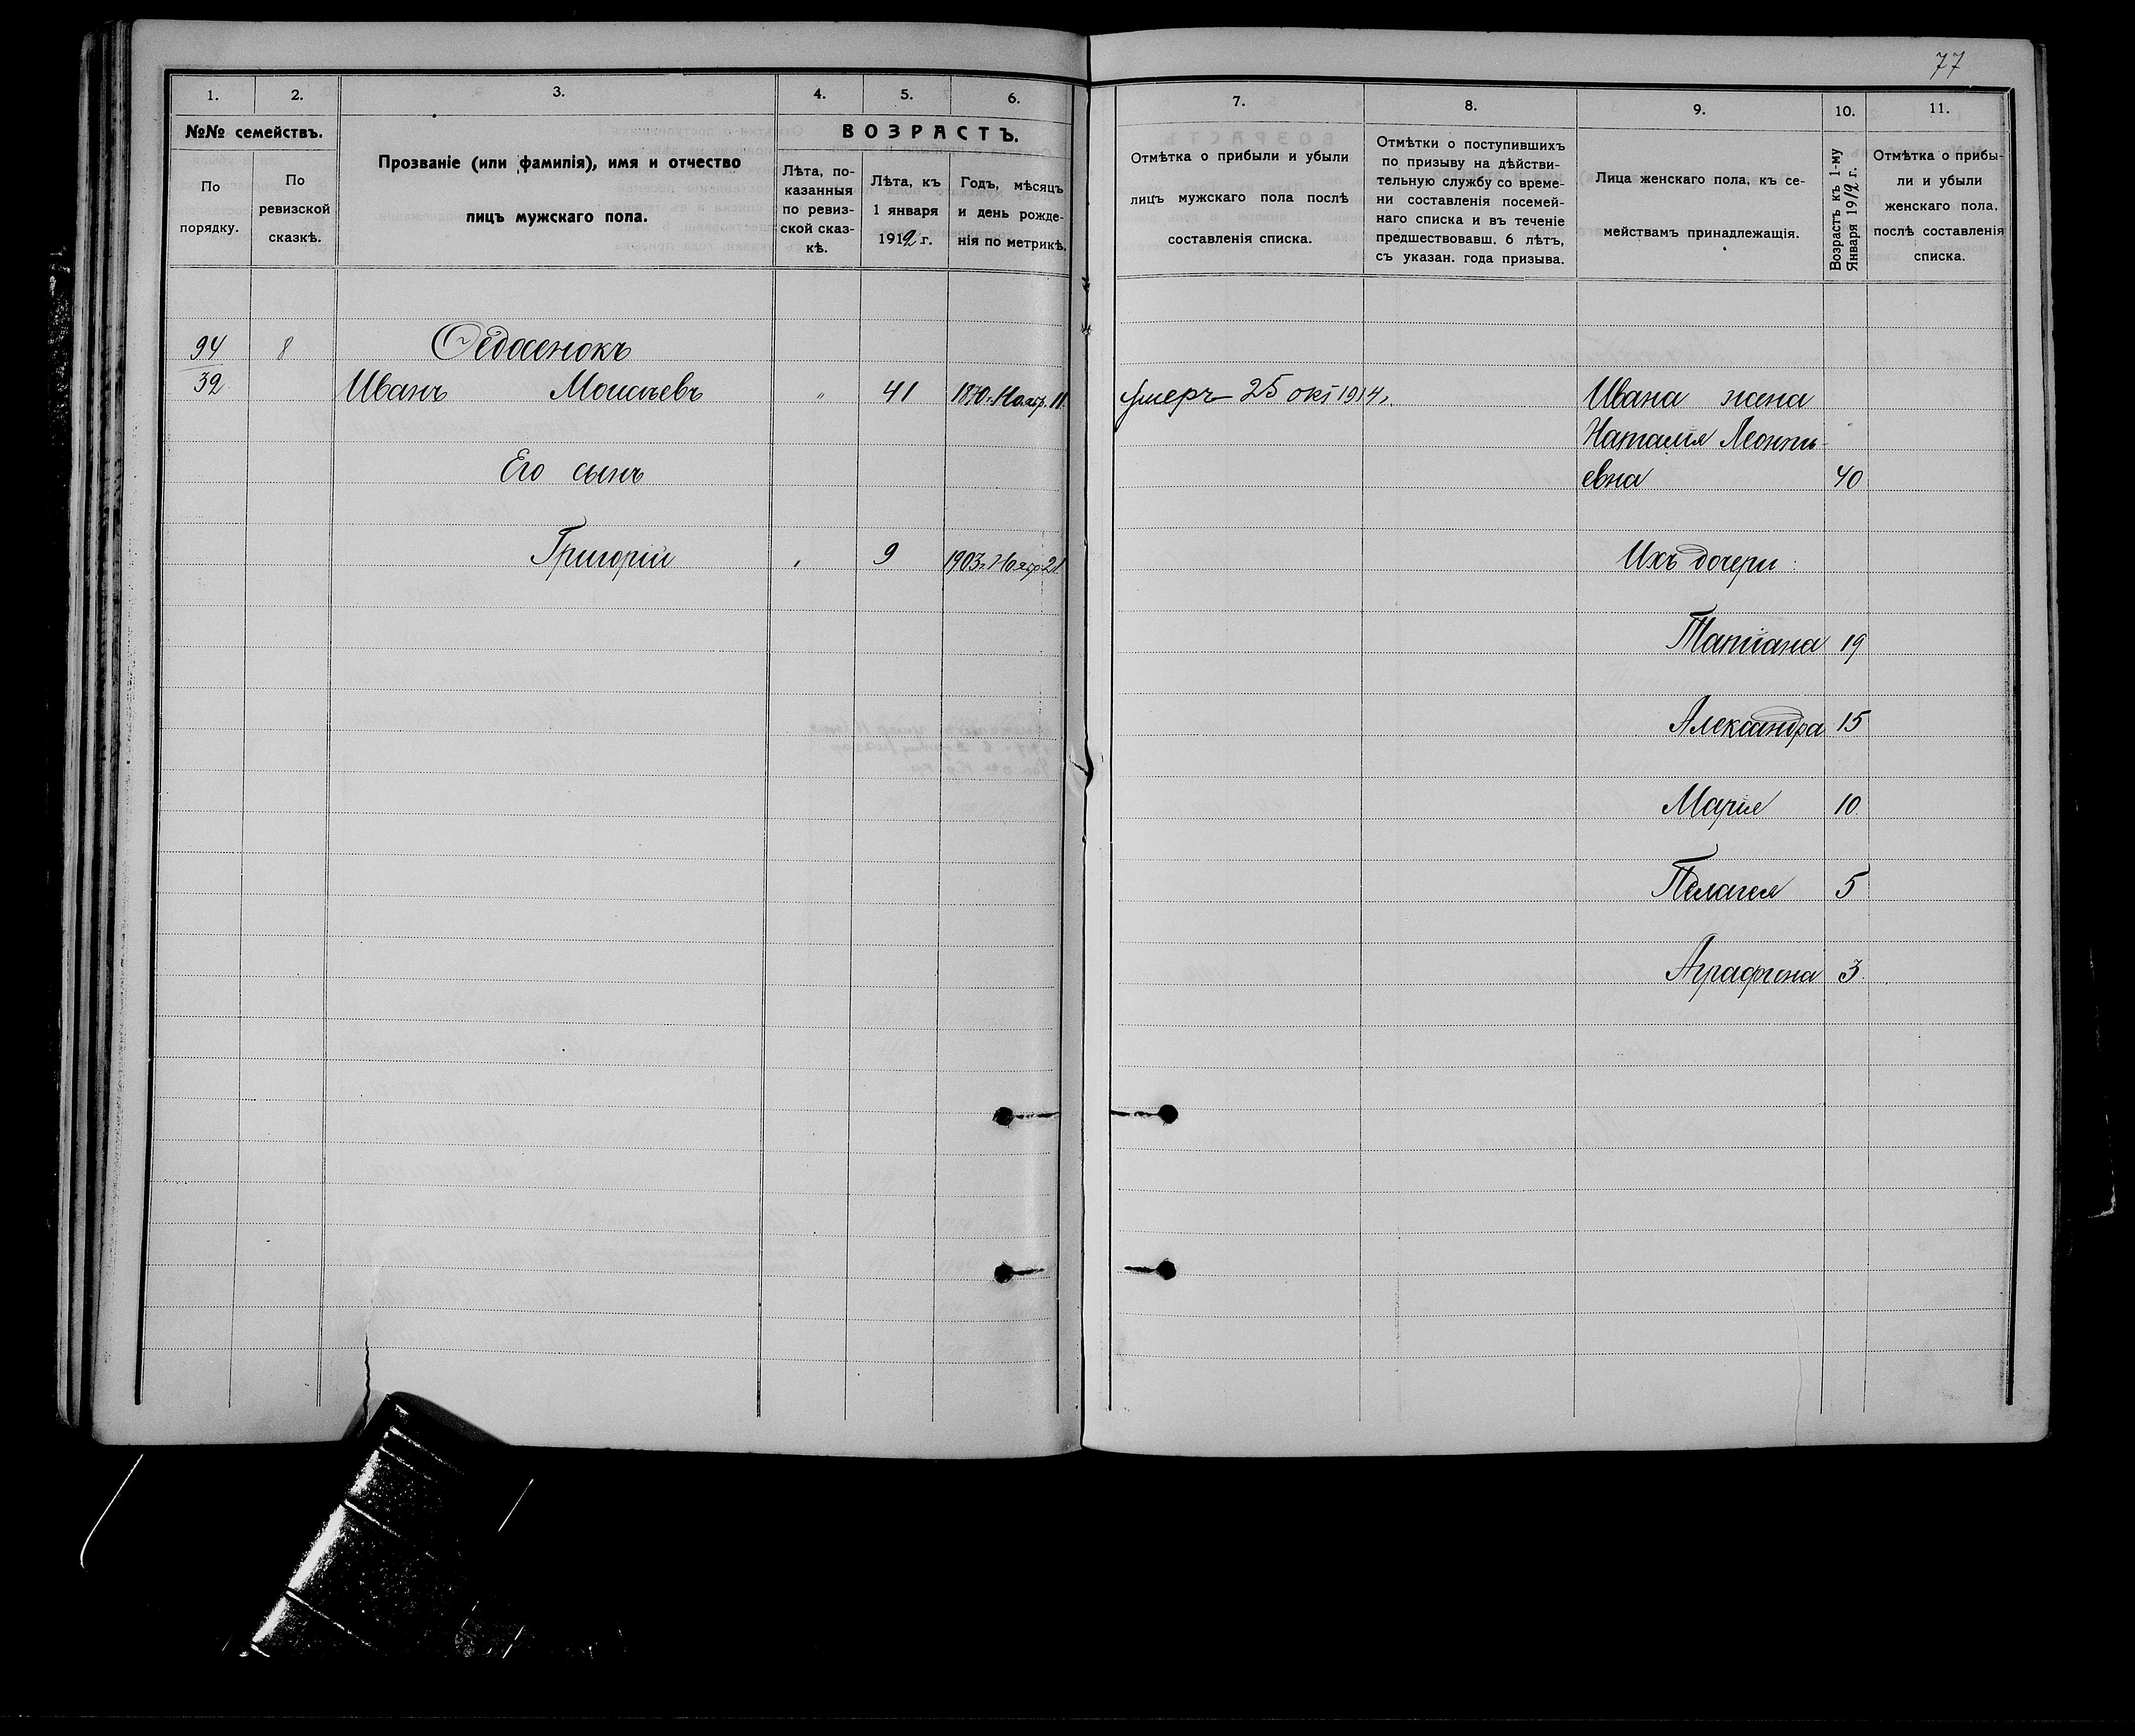 77
1. 2. 3. 4. 5. 6.
№№ семействъ.
По порядку.
По ревизской сказкѣ.
Прозваніе (или фамилія), имя и отчество
лицъ мужскаго пола.
ВОЗРАСТЪ.
Лѣта, по-
казанныя
по ревиз-
ской сказ-
кѣ.
Лѣта, къ
1 января
1912 г.
Годъ, мѣсяцъ
и день рожде-
нія по метрикѣ.
94 8 Ѳедосенокъ
39 Иванъ Моисѣевъ " 41 1870 г. Нояб. 11.
Его сынъ
Григорій " 9 1903 г. Нояб 21
7. 8. 9. 10. 11.
Отмѣтка о прибыли и убыли
лицъ мужскаго пола послѣ
составленія списка.
Отмѣтки о поступившихъ
по призыву на дѣйстви-
тельную службу со време-
ни составленія посемей-
наго списка и въ теченіе
предшествовавш. 6 лѣтъ,
съ указан. года призыва.
Лица женскаго пола, къ се-
мействамъ принадлежащія.
Возрастъ къ 1-му
Января 1912 г.
Отмѣтка о прибы-
ли и убыли
женскаго пола,
послѣ составленія
списка.
умеръ 25 окт 1914 г. Ивана жена
Наталія Леонть-
евна 40
Ихъ дочери:
Татіана 19
Александра 15
Марія 10.
Пелагея 5
Аграфина 3.